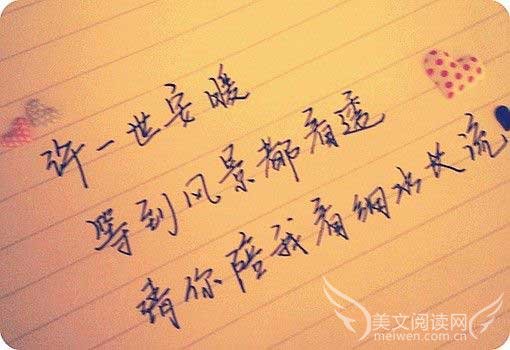 许一世安暖
等到风景都看透
请你陪我看细水长流
美文阅读网
meiwen.com.cn